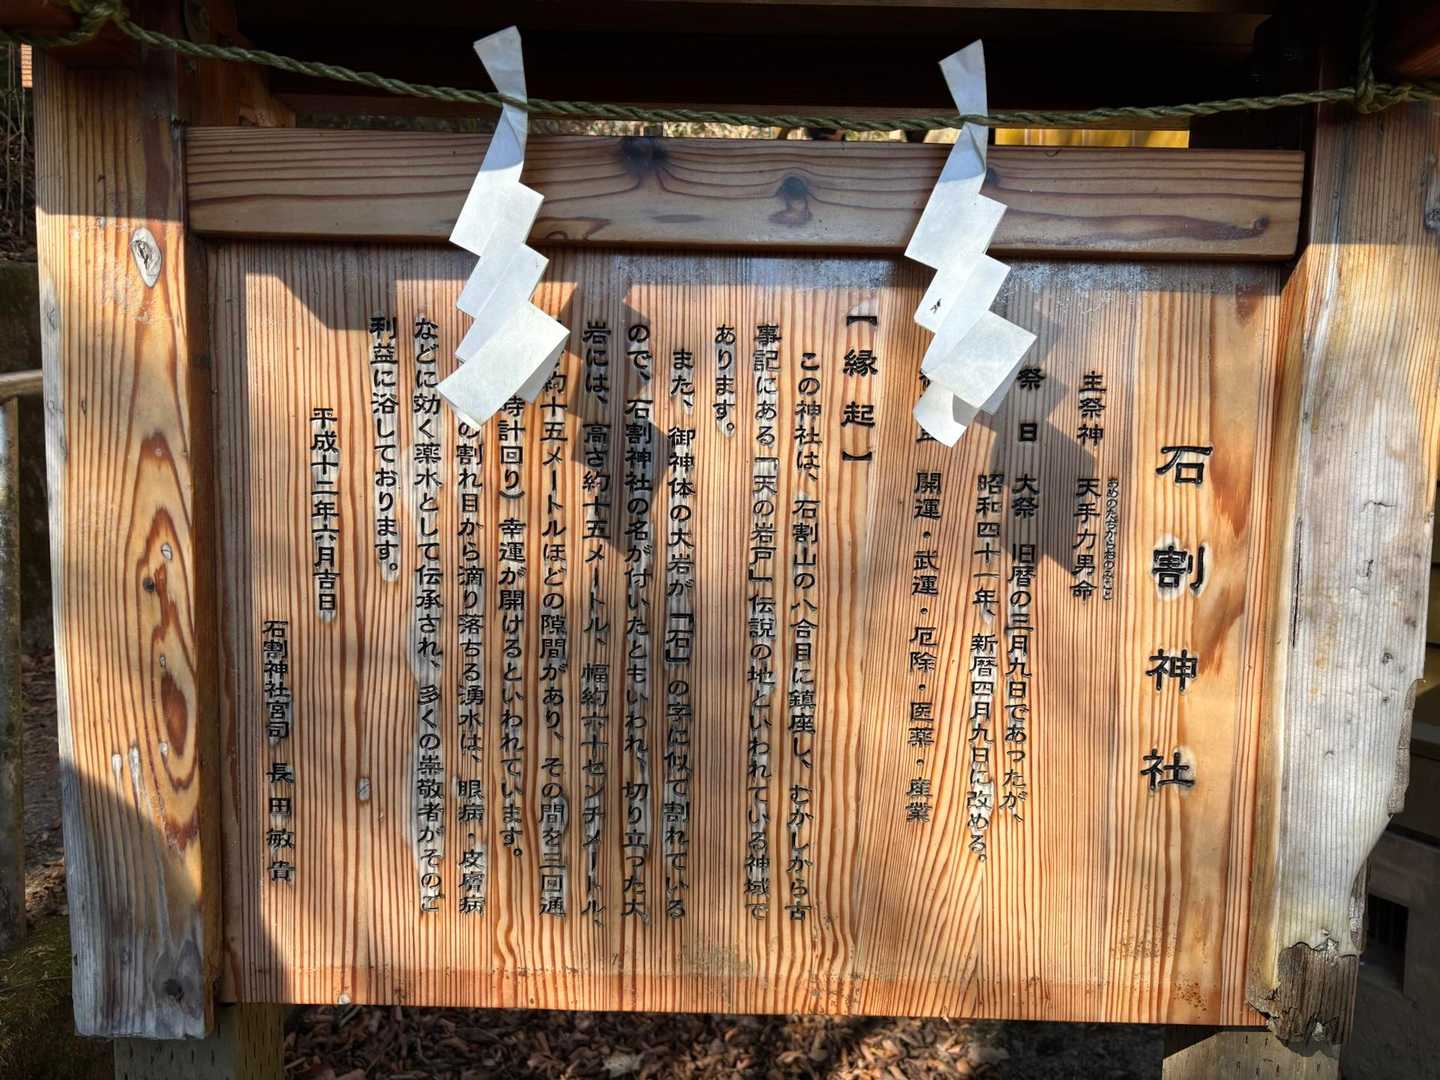 石割神社
主祭神 天手力男命
あめのたぢからおのみこと
祭日 大祭 旧暦の三月九日であったが、
昭和四十一年、新暦四月九日に改める。
開運・武運・厄除・医薬・産業
【縁起】
この神社は、石割山の八合目に鎮座し、むかしから古
事記にある「天の岩戸」伝説の地といわれている神域で
あります。
また、御神体の大岩が「石」の字に似て割れている
ので、石割神社の名が付いたともいわれ、切り立った大
岩には、高さ約十五メートル、幅約六十センチメートル、
約十五メートルほどの隙間があり、その間を三回通
時計回り)幸運が開けるといわれています。
の割れ目から滴り落ちる湧水は、眼病・皮膚病
などに効く薬水として伝承され、多くの崇敬者がそのご
利益に浴しております。
平成十二年六月吉日
石割神社宮司 長田敏貴